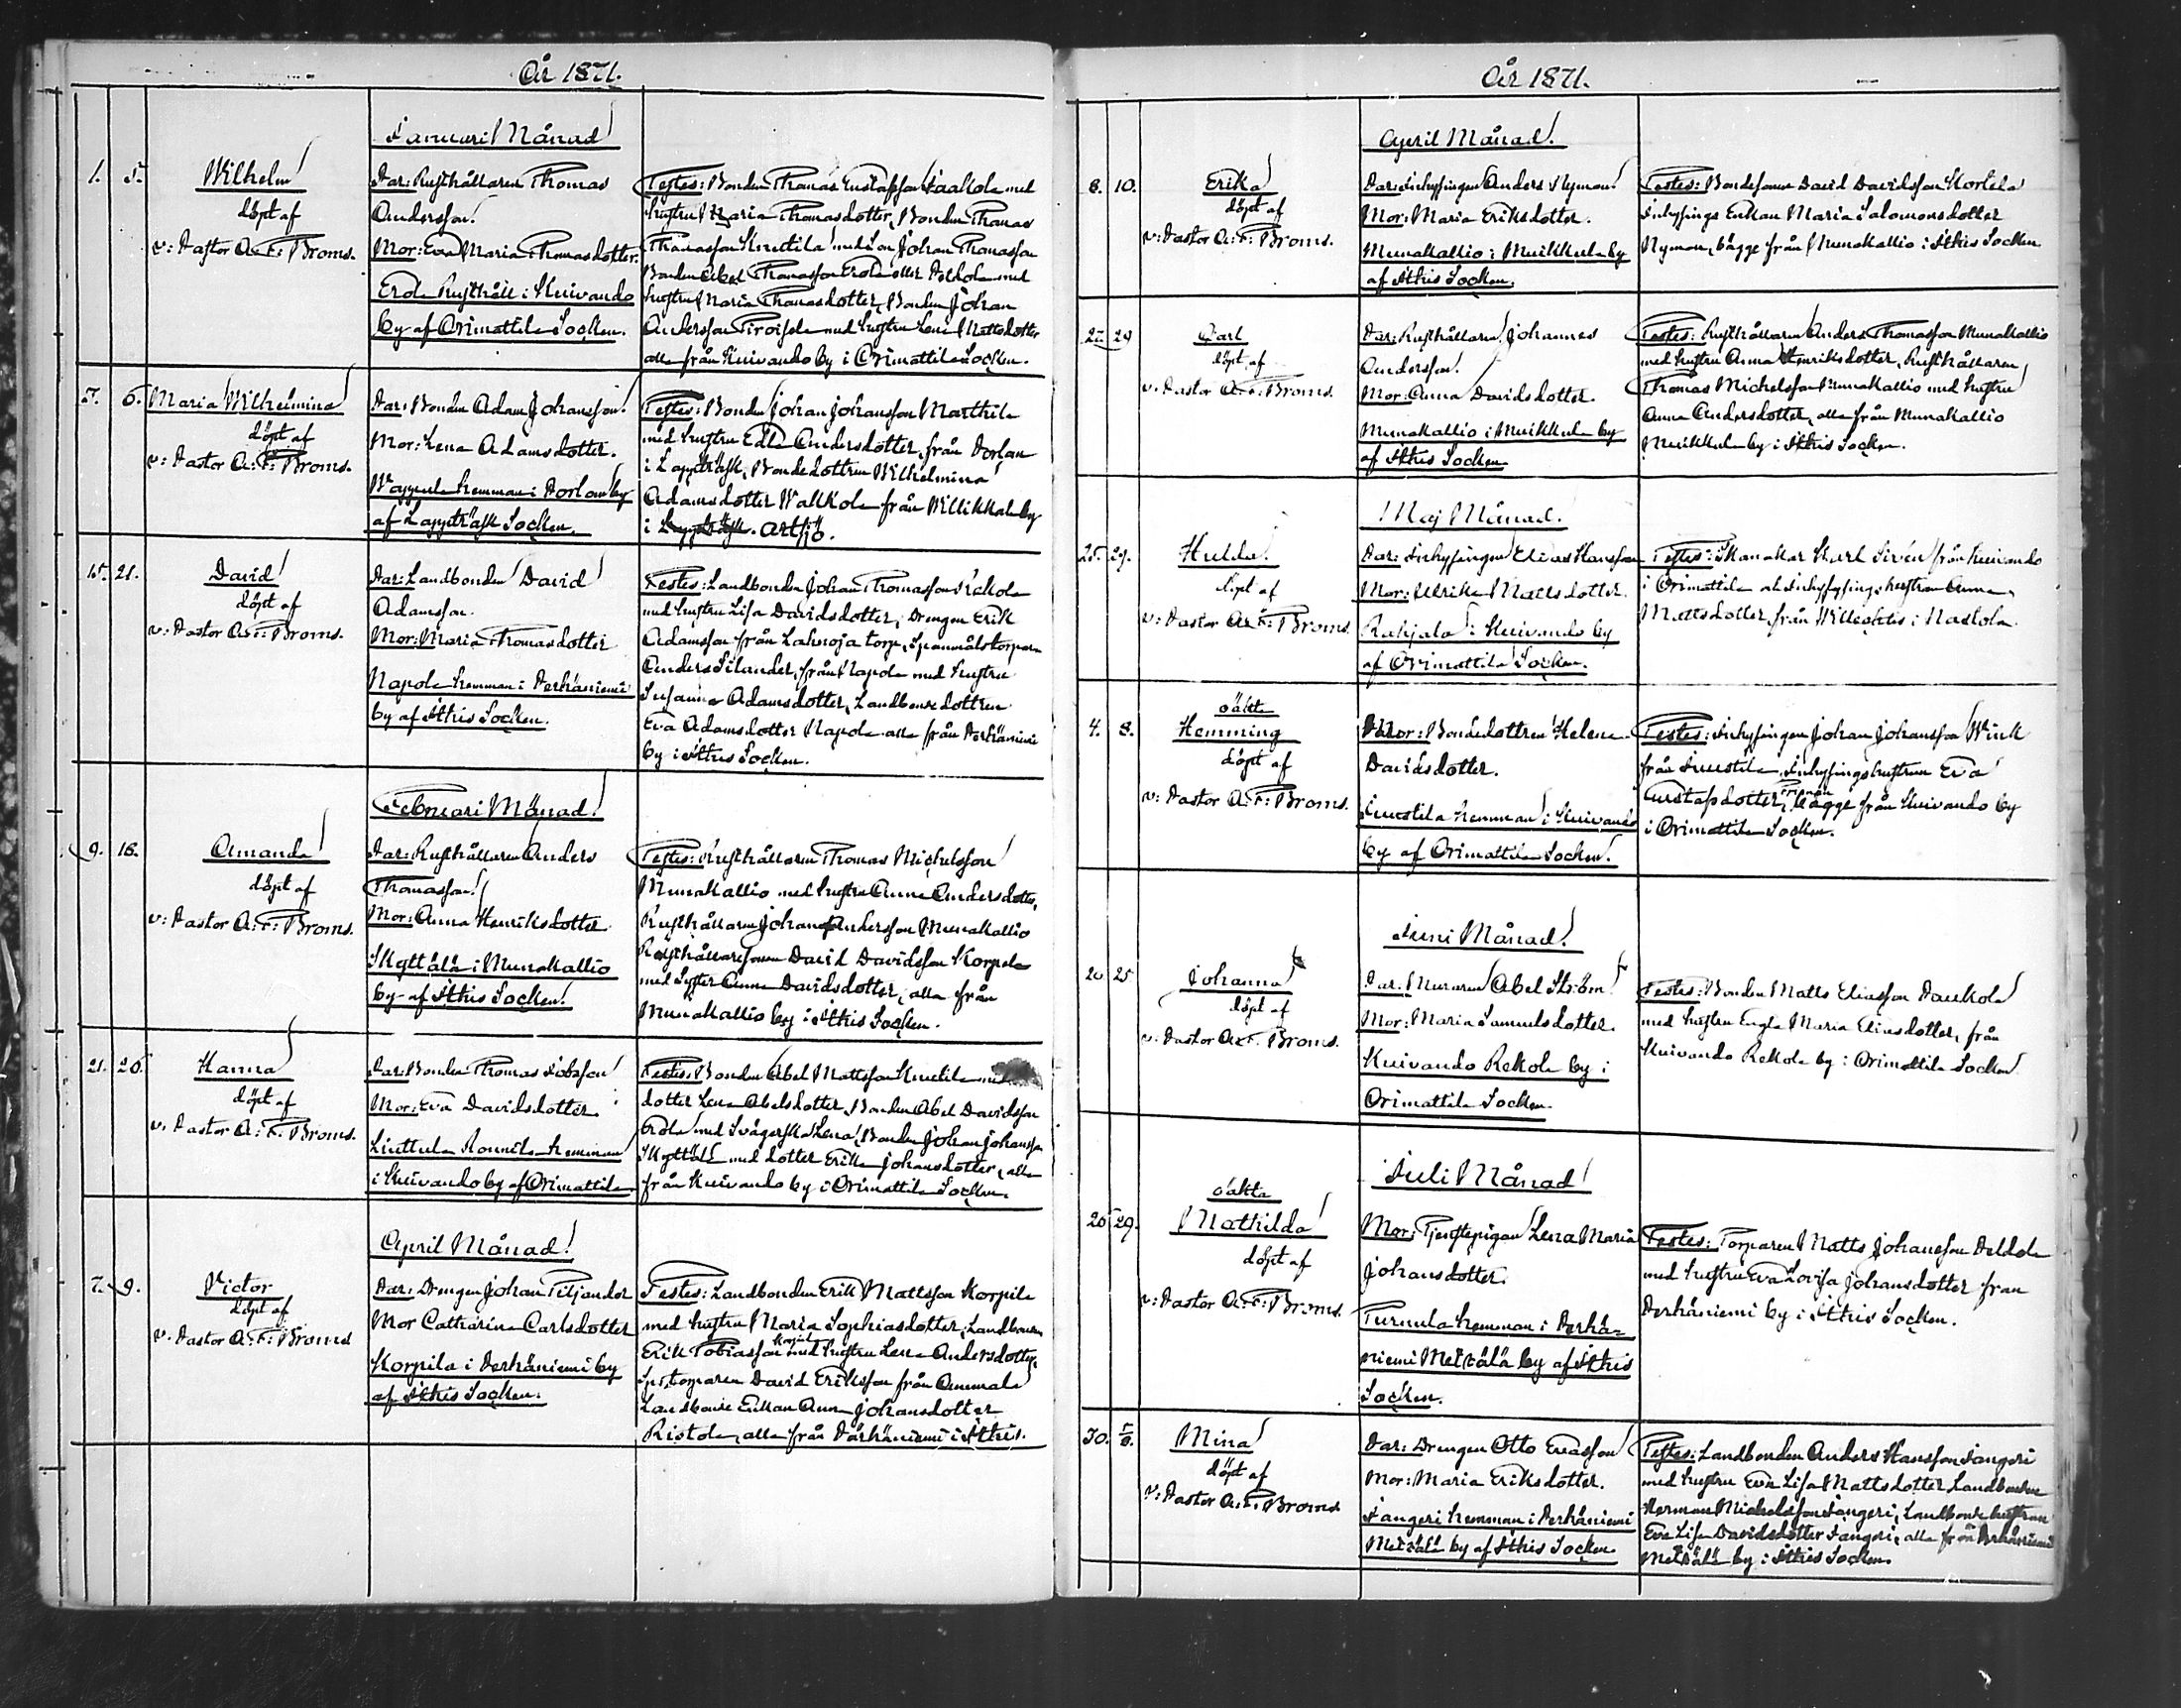 År 1871.
Januari Månad
1. 5. Wilhelm
döpt af
v: Pastor A: F: Broms.
Far: Rusthållaren Thomas
Andersson.
Mor: Eva Maria Thomasdotter.
Erola Rusthåll i Kuivando
by af Orimattila Socken.
Testes: Bonden Thomas Gustafsson Jaakola med
hustru Maria Thomasdotter, Bonden Thomas
Thomasson Knutila med son Johan Thomasson
Bonden Abel Thomasson Erola eller Peldola med
hustru Maria Thomasdotter, Bonden Johan
Andersson med hustru Lena Mattsdotter
alla från Kuivando by i Orimattila Socken.
6. Maria Wilhelmina
döpt af
v: Pastor A: F: Broms.
Far: Bonden Adam Johansson.
Mor: Lena Adamsdotter.
hemman i Porlom by
af Lappträsk Socken.
Testes: Bonden Johan Johansson Marttila
med hustru Edla Andersdotter, från Porlom
i Lappträsk, Bondedottren Wilhelmina
Adamsdotter Walkola från Willikkala by
i Lappträsk. Artsjö.
15. 21. David
döpt af
v: Pastor A: F: Broms.
Far: Landbonden David
Adamsson.
Mor: Maria Thomasdotter
Napola hemman i Perhäniemi
by af Ithis Socken.
Testes: Landbonden Johan Thomasson
med hustru Lisa Davidsdotter, Drengen Erik
Adamsson från Lahnoja torp, Spanmålstorparn
Anders Silander, från Napola med hustru
Susanna Adamsdotter, Landbonde dottren
Eva Adamsdotter Napola alla från Perhäniemi
by i Ithis Socken.
Februari Månad
9. 18. Amanda
döpt af
v: Pastor A: F: Broms.
Far: Rusthållaren Anders
Thomasson.
Mor: Anna Henriksdotter
Skyttälä i Munakallio
by af Ithis Socken.
Testes: Rusthållaren Thomas Michelsson
Munakallio med hustru Anna Andersdotter,
Rusthållaren Johan Andersson Munakallio
Rusthållaresonen David Davidsson Korpela
med Syster Anna Davidsdotter, alla från
Munakallio by i Ithis Socken.
21. 26. Hanna
döpt af
v: Pastor A: F: Broms.
Far: Bonden Thomas Jobsson
Mor: Eva Davidsdotter.
hemman
i Kuivando by af Orimattila
Testes: Bonden Abel Mattsson Knutila med
dotter Lena Abelsdotter, Bonden Abel Davidsson
Erola med Svägerska Lena, Bonden Johan Johansson
Skyttälä med dotter Erika Johansdotter, alla
från Kuivando by i Orimattila Socken.
April Månad
7. 9. Victor
döpt af
v: Pastor A: F: Broms
Far: Drengen Johan Piljander
Mor Catharina Carlsdotter
Korpila i Perhäniemi by
af Ithis Socken.
Testes: Landbonden Erik Mattsson Korpila
med hustru Maria Sophiasdotter, Landbonden
Erik Tobiasson med hustru Lena Andersdotter,
David Eriksson från Ammala
Landbonde Enkan Anna Johansdotter
Ristola, alla från Perhäniemi i Ithis.
År 1871.
April Månad.
8. 10. Erika
döpt af
v: Pastor A: F: Broms.
Far: Inhysingen Anders Nyman
Mor: Maria Eriksdotter.
Munakallio i Muikkula by
af Ithis Socken.
Testes: Bondesonen David Davidsson Kortela
Inhysings Enkan Maria Salomonsdotter
Nyman, bägge från Munakallio i Ithis Socken
29 Carl
döpt af
v. Pastor A: F: Broms.
Far: Rusthållaren Johannes
Andersson.
Mor: Anna Davidsdotter.
Munakallio i Muikkula by
af Ithis Socken.
Testes: Rusthållaren Anders Thomasson Munakallio
med hustru Anna Henriksdotter, Rusthållaren
Thomas Michelsson Munakallio med hustru
Anna Andersdotter, alla från Munakallio
Muikkula by i Ithis Socken.
Maj Månad.
25. 29. Hulda
döpt af
v: Pastor A: F: Broms.
Far: Inhysingen Elias Hansson
Mor: Ulrika Mattsdotter.
Rahjala i Kuivando by
af Orimattila Socken.
Testes: Skomakar Karl Sirén från Kuivando
i Orimattila och Inhysings hustrun Anna
Mattsdotter, från Willähtis i Nastola.
4. 8. oäkta
Hemming
döpt af
v: Pastor A: F: Broms.
Mor: Bondedottren Helena
Davidsdotter.
hemman i Kuivando
by af Orimattila Socken.
Testes: Inhysingen Johan Johansson Wink
från Inhysingshustrun Eva
Gustafsdotter, bägge från Kuivando by
i Orimattila Socken.
Juni Månad.
20 25 Johanna
döpt af
v: Pastor A: F: Broms.
Far: Muraren Abel Ström
Mor: Maria Samuelsdotter.
Kuivando Rekola by i
Orimattila Socken.
Testes: Bonden Matts Eliasson Paukola
med hustru Engla Maria Eliasdotter, från
Kuivando Rekola by i Orimattila Socken
Juli Månad
20 29. oäkta
Mathilda
döpt af
v: Pastor A: F: Broms.
Mor: Tjenstepigan Lena Maria
Johansdotter.
Turnula hemman i Perhä-
niemi Mettälä by af Ithis
Socken.
Testes: Torparen Matts Johansson Peldola
med hustru Eva Lovisa Johansdotter från
Perhäniemi by i Ithis Socken.
30. Mina
döpt af
v: Pastor A: F: Broms
Far: Drengen Otto Evasson
Mor: Maria Eriksdotter.
Jangeri hemman i Perhäniemi
Mettälä by af Ithis Socken
Testes: Landbonden Anders Hansson Jangeri
med hustru Eva Lisa Mattsdotter Landbonden
Herman Michelsson Jangeri, Landbonde hustrun
Eva Lisa Davidsdotter Jangeri, alla från Perhäniemi
Mettälä by i Ithis Socken.